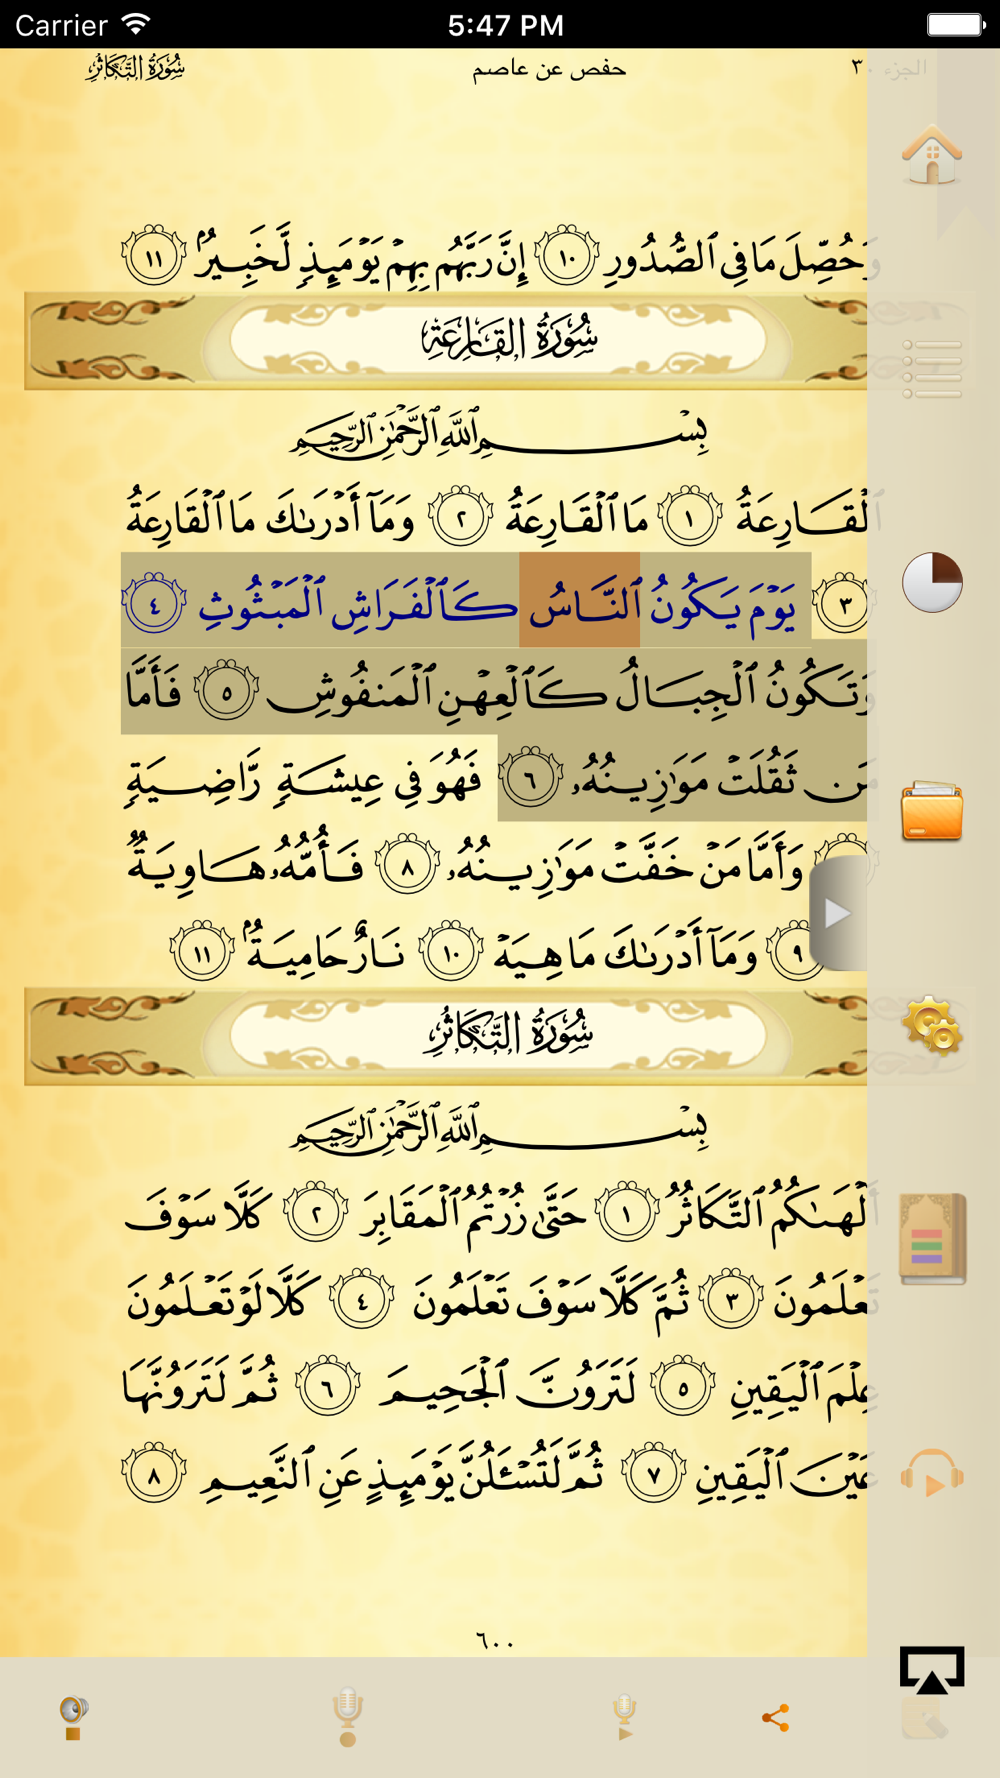 Carrier 5:47 PM
سُورَةُ التَّكَاثُرِ حفص عن عاصم الجزء ٣٠
وَحُصِّلَ مَا فِي ٱلصُّدُورِ ١٠ إِنَّ رَبَّهُم بِهِمْ يَوْمَئِذٍ لَّخَبِيرٌۢ ١١
سُورَةُ القَارِعَةِ
بِسْمِ ٱللَّهِ ٱلرَّحْمَٰنِ ٱلرَّحِيمِ
ٱلْقَارِعَةُ ١ مَا ٱلْقَارِعَةُ ٢ وَمَآ أَدْرَىٰكَ مَا ٱلْقَارِعَةُ
٣ يَوْمَ يَكُونُ ٱلنَّاسُ كَٱلْفَرَاشِ ٱلْمَبْثُوثِ ٤
وَتَكُونُ ٱلْجِبَالُ كَٱلْعِهْنِ ٱلْمَنفُوشِ ٥ فَأَمَّا
مَن ثَقُلَتْ مَوَٰزِينُهُۥ ٦ فَهُوَ فِي عِيشَةٍ رَّاضِيَةٍ
وَأَمَّا مَنْ خَفَّتْ مَوَٰزِينُهُۥ ٨ فَأُمُّهُۥ هَاوِيَةٌ
٩ وَمَآ أَدْرَىٰكَ مَا هِيَهْ ١٠ نَارٌ حَامِيَةٌۢ ١١
سُورَةُ التَّكَاثُرِ
بِسْمِ ٱللَّهِ ٱلرَّحْمَٰنِ ٱلرَّحِيمِ
أَلْهَىٰكُمُ ٱلتَّكَاثُرُ ١ حَتَّىٰ زُرْتُمُ ٱلْمَقَابِرَ ٢ كَلَّا سَوْفَ
تَعْلَمُونَ ٣ ثُمَّ كَلَّا سَوْفَ تَعْلَمُونَ ٤ كَلَّا لَوْ تَعْلَمُونَ
عِلْمَ ٱلْيَقِينِ ٥ لَتَرَوُنَّ ٱلْجَحِيمَ ٦ ثُمَّ لَتَرَوُنَّهَا
عَيْنَ ٱلْيَقِينِ ٧ ثُمَّ لَتُسْـَٔلُنَّ يَوْمَئِذٍ عَنِ ٱلنَّعِيمِ ٨
٦٠٠